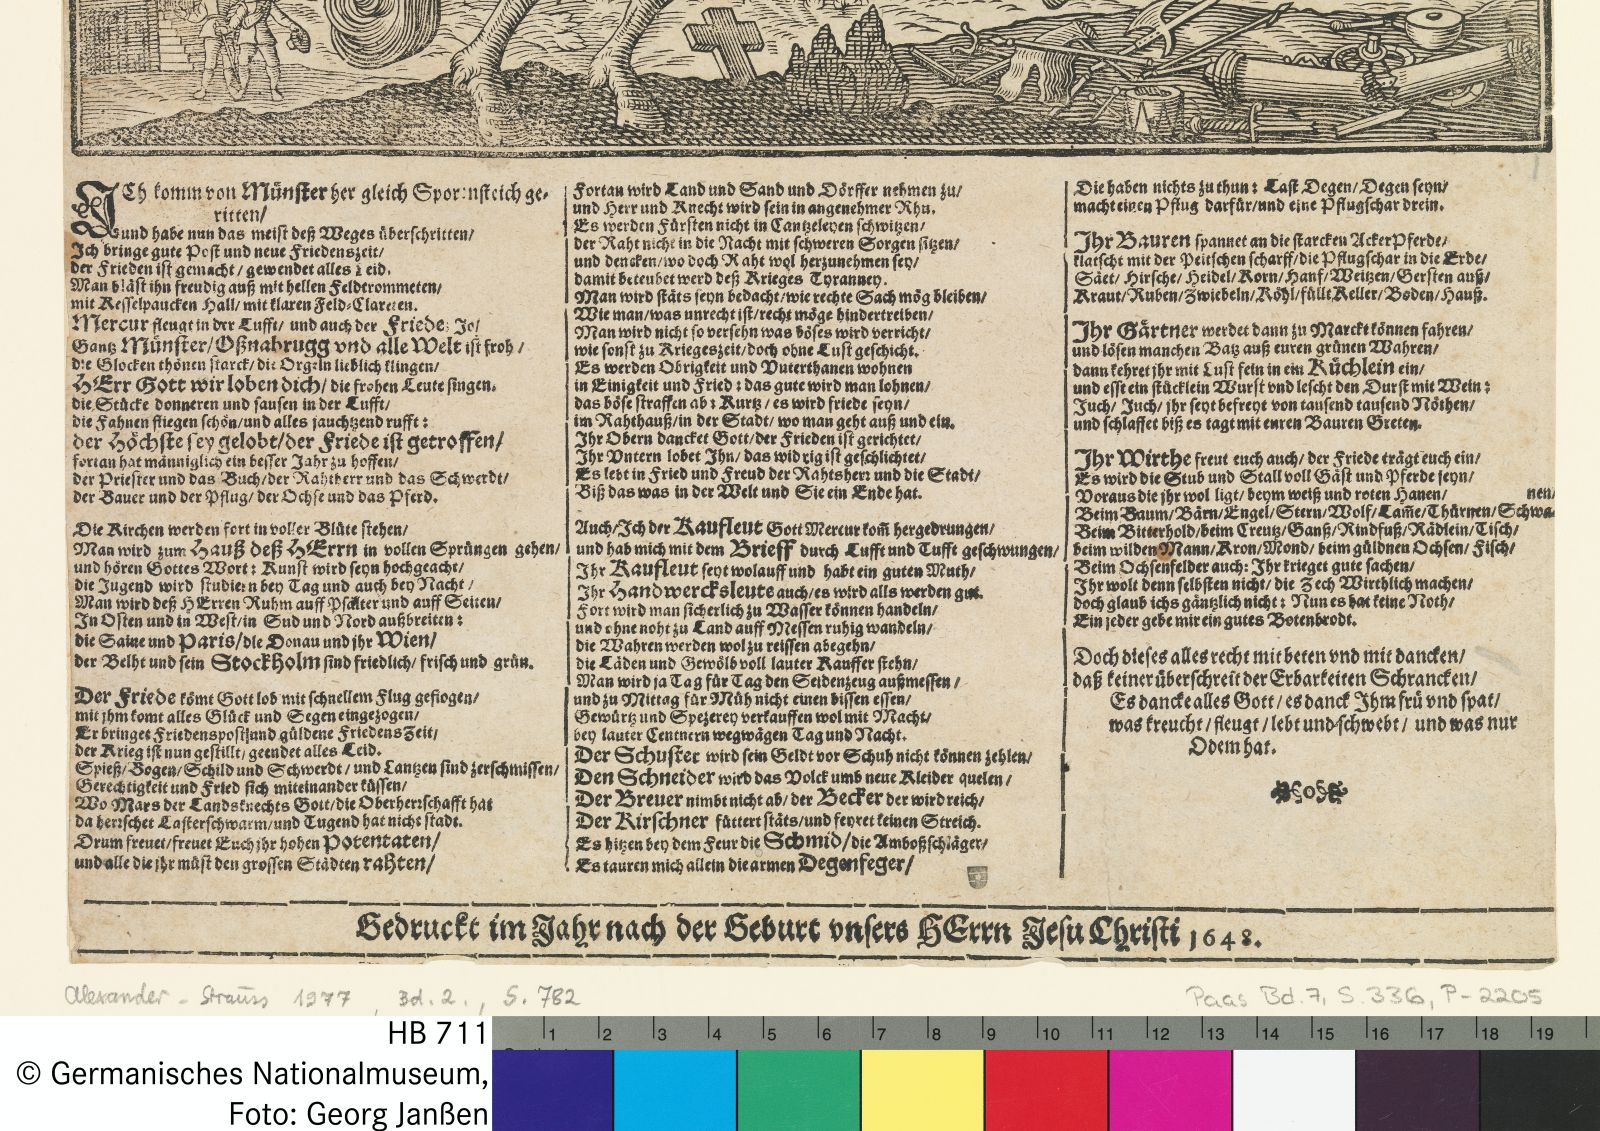 ICh komm von Münster her gleich Spornstreich ge-
ritten/
und habe nun das meist deß Weges überschritten/
Ich bringe gute Post und neue Friedenszeit/
der Frieden ist gemacht/ gewendet alles Leid.
Man bläst ihn freudig auß mit hellen Feldtrommeten/
mit Kesselpaucken Hall/ mit klaren Feld-Clareten.
Mercur fleugt in der Lufft/ und auch der Friede: Jo/
Gantz Münster/ Oßnabrugg vnd alle Welt ist froh/
die Glocken thönen starck/ die Orgeln lieblich klingen/
HErr Gott wir loben dich/ die frohen Leute singen.
die Stücke donneren und sausen in der Lufft/
die Fahnen fliegen schön/ und alles jauchzend rufft:
der Höchste sey gelobt/ der Friede ist getroffen/
fortan hat männiglich ein besser Jahr zu hoffen/
der Priester und das Buch/ der Rahtherr und das Schwerdt/
der Bauer und der Pflug/ der Ochse und das Pferd.
Die Kirchen werden fort in voller Blüte stehen/
Man wird zum Hauß deß HErrn in vollen Sprüngen gehen/
und hören Gottes Wort: Kunst wird seyn hochgeacht/
die Jugend wird studieren bey Tag und auch bey Nacht/
Man wird deß HErren Ruhm auff Psalter und auff Seiten/
In Osten und in West/ in Sud und Nord außbreiten:
die Saine und Paris/ die Donau und ihr Wien/
der Belht und sein Stockholm sind friedlich/ frisch und grün.
Der Friede kömt Gott lob mit schnellem Flug geflogen/
mit ihm komt alles Glück und Segen eingezogen/
Er bringet Friedenspost und güldne FriedensZeit/
der Krieg ist nun gestillt/ geendet alles Leid.
Spieß/ Bogen/ Schild und Schwerdt/ und Lantzen sind zerschmissen/
Gerechtigkeit und Fried sich miteinander küssen/
Wo Mars der Landsknechts Gott/ die Oberherrschafft hat
da herrschet Lasterschwarm/ und Tugend hat nicht stadt.
Drum freuet/ freuet Euch ihr hohen Potentaten/
und alle die ihr müst den grossen Städten rahten/
Fortan wird Land und Sand und Dörffer nehmen zu/
und Herr und Knecht wird sein in angenehmer Rhu.
Es werden Fürsten nicht in Cantzeleyen schwitzen/
der Raht nicht in die Nacht mit schweren Sorgen sitzen/
und dencken/ wo doch Raht wol herzunehmen sey/
damit beteubet werd deß Krieges Tyranney.
Man wird stäts seyn bedacht/ wie rechte Sach mög bleiben/
Wie man/ was unrecht ist/ recht möge hindertreiben/
Man wird nicht so versehn was böses wird verricht/
wie sonst zu Kriegeszeit/ doch ohne Lust geschicht.
Es werden Obrigkeit und Vnterthanen wohnen
in Einigkeit und Fried: das gute wird man lohnen/
das böse straffen ab: Kurtz/ es wird friede seyn/
im Rahthauß/ in der Stadt/ wo man geht auß und ein.
Ihr Obern dancket Gott/ der Frieden ist gerichtet/
Ihr Vntern lobet Ihn/ das widrig ist geschlichtet/
Es lebt in Fried und Freud der Rahtsherr und die Stadt/
Biß das was in der Welt und Sie ein Ende hat.
Auch/ Ich der Kaufleut Gott Mercur kom̃ hergedrungen/
und hab mich mit dem Brieff durch Lufft und Tufft geschwungen/
Ihr Kaufleut seyt wolauff und habt ein guten Muth/
Ihr Handwercksleute auch/ es wird alls werden gut.
Fort wird man sicherlich zu Wasser können handeln/
und ohne noht zu Land auff Messen ruhig wandeln/
die Wahren werden wol zu reissen abegehn/
die Läden und Gewölb voll lauter Kauffer stehn/
Man wird ja Tag für Tag den Seidenzeug außmessen/
und zu Mittag für Müh nicht einen bissen essen/
Gewürtz und Spezerey verkauffen wol mit Macht/
bey lauter Centnern wegwägen Tag und Nacht.
Der Schuster wird sein Geldt vor Schuh nicht können zehlen/
Den Schneider wird das Volck umb neue Kleider quelen/
Der Breuer nimbt nicht ab/ der Becker der wird reich/
Der Kirschner füttert stäts/ und feyret keinen Streich.
Es hitzen bey dem Feur die Schmid/ die Amboßschläger/
Es tauren mich allein die armen Degenfeger/
Die haben nichts zu thun: Last Degen/ Degen seyn/
macht einen Pflug darfür/ und eine Pflugschar drein.
Ihr Bauren spannet an die starcken AckerPferde/
klatscht mit der Peitschen scharff/ die Pflugschar in die Erde/
Säet/ Hirsche/ Heidel/ Korn/ Hanf/ Weitzen/ Gersten auß/
Kraut/ Ruben/ Zwiebeln/ Köhl/ füllt Keller/ Boden/ Hauß.
Ihr Gärtner werdet dann zu Marckt können fahren/
und lösen manchen Batz auß euren grünen Wahren/
dann kehret ihr mit Lust fein in ein Küchlein ein/
und esst ein stücklein Wurst vnd lescht den Durst mit Wein:
Juch/ Juch/ ihr seyt befreyt von tausend tausend Nöthen/
und schlaffet biß es tagt mit euren Bauren Greten.
Ihr Wirthe freut euch auch/ der Friede trägt euch ein/
Es wird die Stub und Stall voll Gäst und Pferde seyn/
Voraus die ihr wol ligt/ beym weiß und roten Hanen/ nen/
Beim Baum/ Bärn/ Engel/ Stern/ Wolf/ Lam̃e/ Thürnen/ Schwa-
Beim Bitterhold/ beim Creutz/ Ganß/ Rindfuß/ Rädlein/ Tisch/
beim wilden Mann/ Kron/ Mond/ beim güldnen Ochsen/ Fisch/
Beim Ochsenfelder auch: Ihr krieget gute sachen/
Ihr wolt denn selbsten nicht/ die Zech Wirthlich machen/
doch glaub ichs gäntzlich nicht: Nun es hat keine Noth/
Ein jeder gebe mir ein gutes Botenbrodt.
Doch dieses alles recht mit beten vnd mit dancken/
daß keiner überschreit der Erbarkeiten Schrancken/
Es dancke alles Gott/ es danck Ihm frü vnd spat/
was kreucht/ fleugt/ lebt und schwebt/ und was nur
Odem hat.
Gedruckt im Jahr nach der Geburt vnsers HErrn Jesu Christi 1648.
Alexander - Strauss 1977, Bd. 2., S. 782
Paas Bd. 7, S. 336, P-2205
HB 711
© Germanisches Nationalmuseum,
Foto: Georg Janßen
1 2 3 4 5 6 7 8 9 10 11 12 13 14 15 16 17 18 19